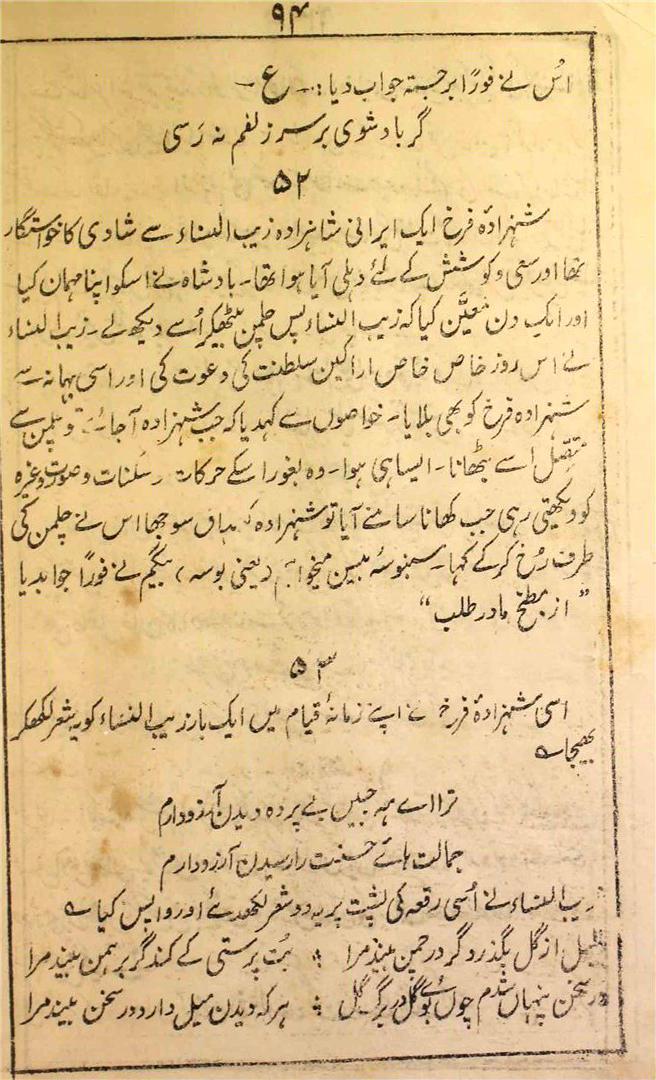 ۹۴
اُس نے فورًا برجستہ جواب دیا:۔ ع ۔
گر باد شوی بر سرِ زلفم نہ رَسی
۵۲
شہزادۂ فرخ ایک ایرانی شاہزادہ زیب النساء سے شادی کا خواستگار
تھا اور سعی و کوشش کے لئے دہلی آیا ہوا تھا۔ بادشاہ نے اسکو اپنا مہمان کیا
اور ایک دن معیّن کیا کہ زیب النساء پس چلمن بیٹھیکر اُسے دیکھ لے۔ زیب النساء
نے اس روز خاص خاص اراکین سلطنت کی دعوت کی اور اسی بہانہ سے
شہزادہ فرخ کو بھی بلایا۔ خواصوں سے کہدیا کہ جب شہزادہ آجائے تو چلمن سے
متصل اسے بٹھانا۔ ایسا ہی ہوا۔ وہ بغور اسکے حرکات و سکنات و صورت وغیرہ
کو دیکھتی رہی جب کھانا سامنے آیا تو شہزادہ کو مذاق سوجھا اس نے چلمن کی
طرف رُخ کر کے کہا۔ سنبوسۂ بیسن میخواہم (یعنی بوسہ) بیگم نے فورًا جوابدیا
”از مطبخ مادر طلب“
۵۳
اسی شہزادۂ فرخ نے اپنے زمانۂ قیام میں ایک بار زیب النساء کو یہ شعر لکھکر
بھیجا ؎
ترا اے مہ جبیں بے پردہ دیدن آرزو دارم
جمالت ہائے حسنت را رسیدن آرزو دارم
زیب النساء نے اُسی رقعہ کی پشت پر یہ دو شعر لکھدئے اور واپس کیا ؎
بلبل از گل بگذرد گر در چمن بیند مرا ؞ بُت پرستی کے کند گر برہمن بیند مرا
در سخن پنہاں شدم چوں بوئے گل در برگِ گل ؞ ہر کہ دیدن میل دارد در سخن بیند مرا